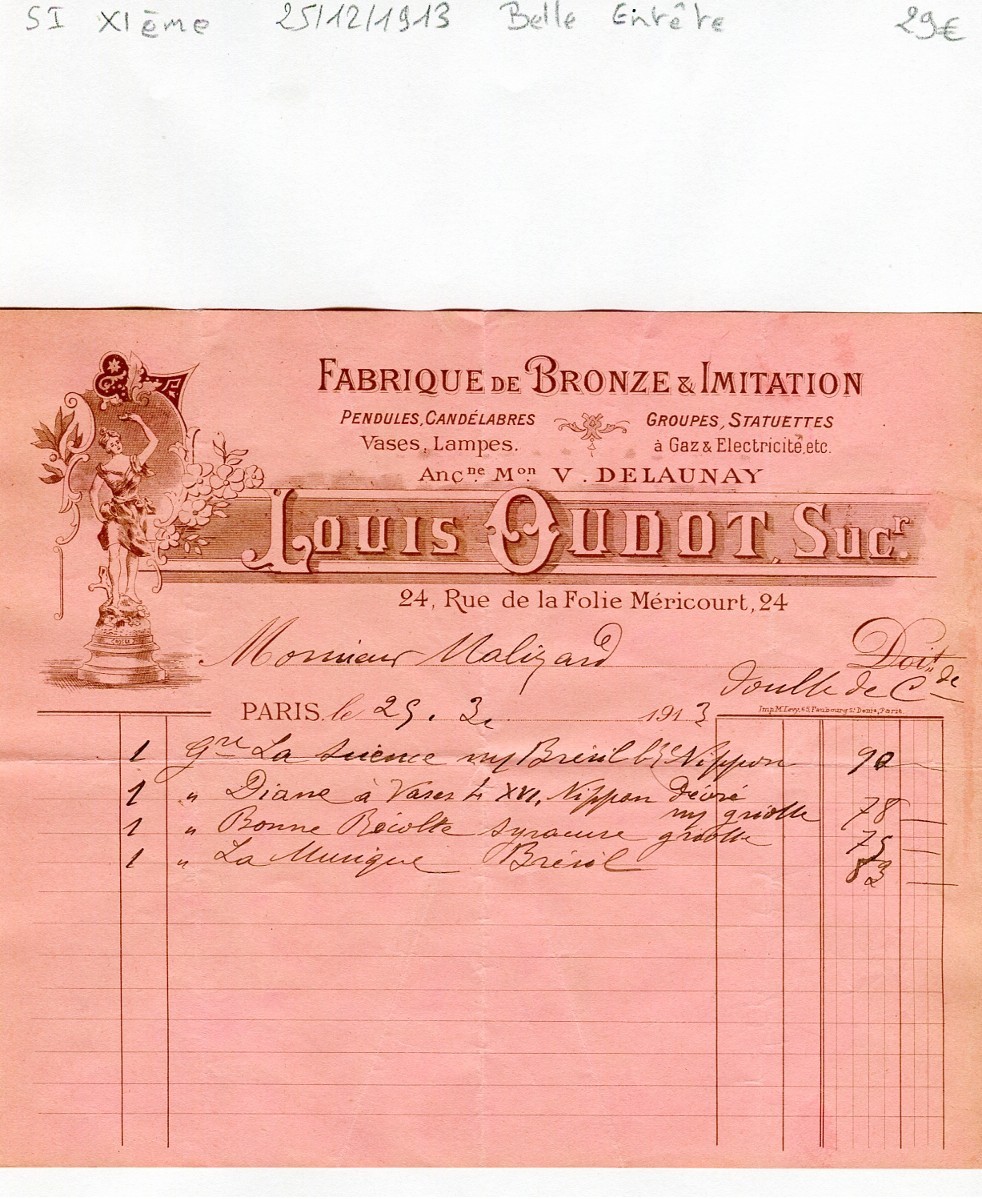 SI XIème 25/12/1913 Belle Entête 29€
FABRIQUE DE BRONZE & IMITATION
PENDULES, CANDÉLABRES GROUPES, STATUETTES
Vases, Lampes. à Gaz & Electricité, etc.
Anc.ne Mon V. DELAUNAY
LOUIS OUDOT, Sucr.
24, Rue de la Folie Méricourt, 24
Monsieur Malizard Doit
de C de
Imp. M. Levy, 45, Faubourg St Denis, Paris.
PARIS, le 25. 3. 1913
1 Gre La Science Brésil Nippon 90 —
1 " Diane à Vases XVI, Nippon décoré
griotte 78 —
1 " Bonne Récolte syracuse griotte 75 —
1 " La Musique Brésil 83 —